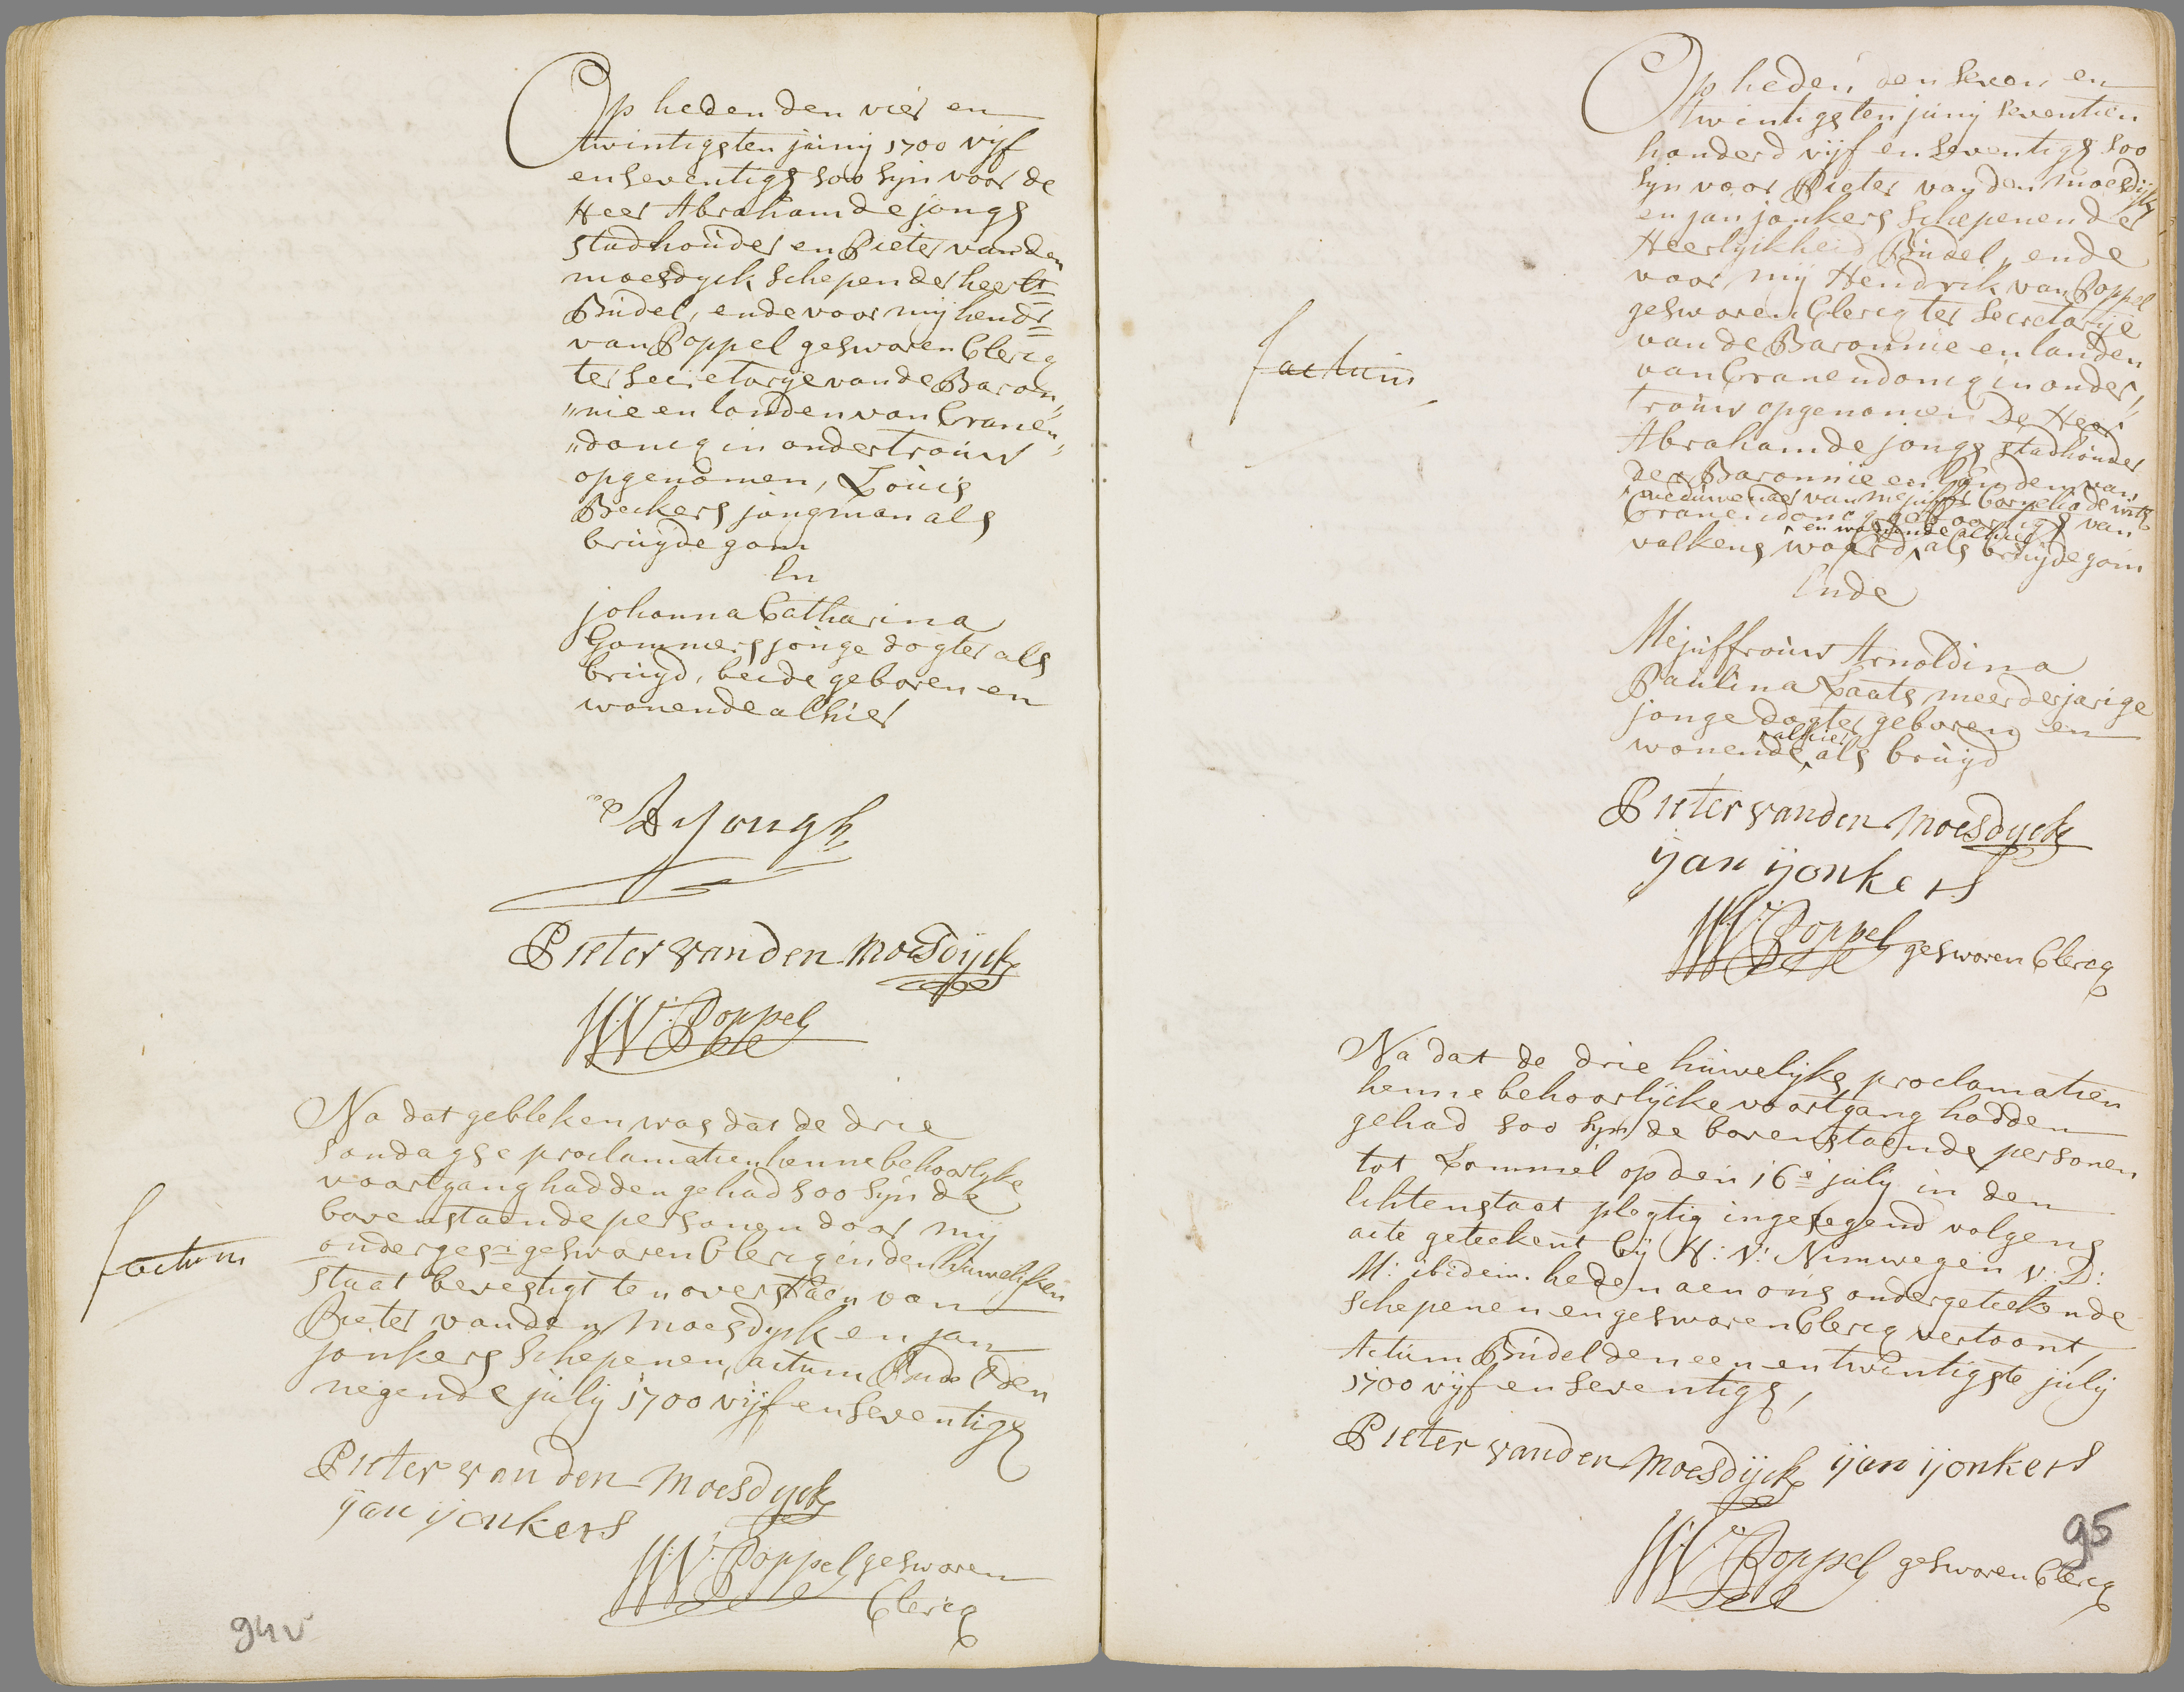 Op heden den vier en
twintigsten junij 1700 vijf
en seventigh soo sijn voor de
Heer Abraham de jongh
stadhouder en Pieter van den
moesdyck schepen der heerlt
Budel, ende voor mij hendr
van Poppel gesworen Clercq
ter secretarije van de Baron„
„nie en landen van Cranen„
„doncq in ondertrouw
opgenomen, Louis
Beckers jongman als
bruijdegom
En
johanna Catharina
Gommers jonge dogter als
bruijd, beide geboren en
wonende alhier
A d Jongh
Pieter vanden Moesdijck
H: V: Poppel
Na dat gebleken was dat de drie
sondagse proclamatien henne behoorlyke
voortgang hadden gehad soo sijn de
bovenstaende personen door mij
onderges: gesworen Clercq in den huwelijken
staat bevestigt ten overstaen van
Pieter vanden Moesdyck en jan
jonkers Schepenen, actum Budel den
negende julij 1700 vijf en seventigh
factum
Pieter vanden Moesdyck
ijan ijonkers
H: V: Poppel gesworen
Clercq
94v
Op heden den seven en
twintigsten junij seventien
honderd vijf en seventigh soo
syn voor Pieter van den moesdijck
en jan jonkers schepenen der
Heerlyikheid Budel, ende
voor mij Hendrik van Poppel
gesworen Clercq ter Secretarije
van de Baronnie en landen
van Cranendoncq in onder„
trouw opgenomen De Heer
Abraham de jongh stadhouder
der Baronnie en landen van
weduwenaer van mejuffr Cornelia de with
Cranendoncq geboortigh van
en wonende alhier
valkens waard als bruijdegom
Ende
Mejuffrouw Arnoldina
Paulina Laats meerderjarige
jonge dogter geboren en
alhier
wonende als bruijd
factum
Pieter vanden Moesdyck
ijan ijonkers
H: V: Poppel gesworen Clercq
Na dat de drie huwelijks proclamatien
henne behoorlijcke voortgang hadden
gehad soo sijn de bovenstaende personen
tot Lommel op den 16e julij in den
Echtenstaat plegtig ingesegend volgens
acte geteekent bij H: V: Nimwegen V: D:
M: ibidem. heden aen ons ondergeteekende
schepenen en gesworen Clercq vertoont,
Actum Budel den een en twintigste julij
1700 vijf en seventigh,
Pieter vanden Moesdijck ijan ijonkers
H: V: Poppel gesworen Clercq
95